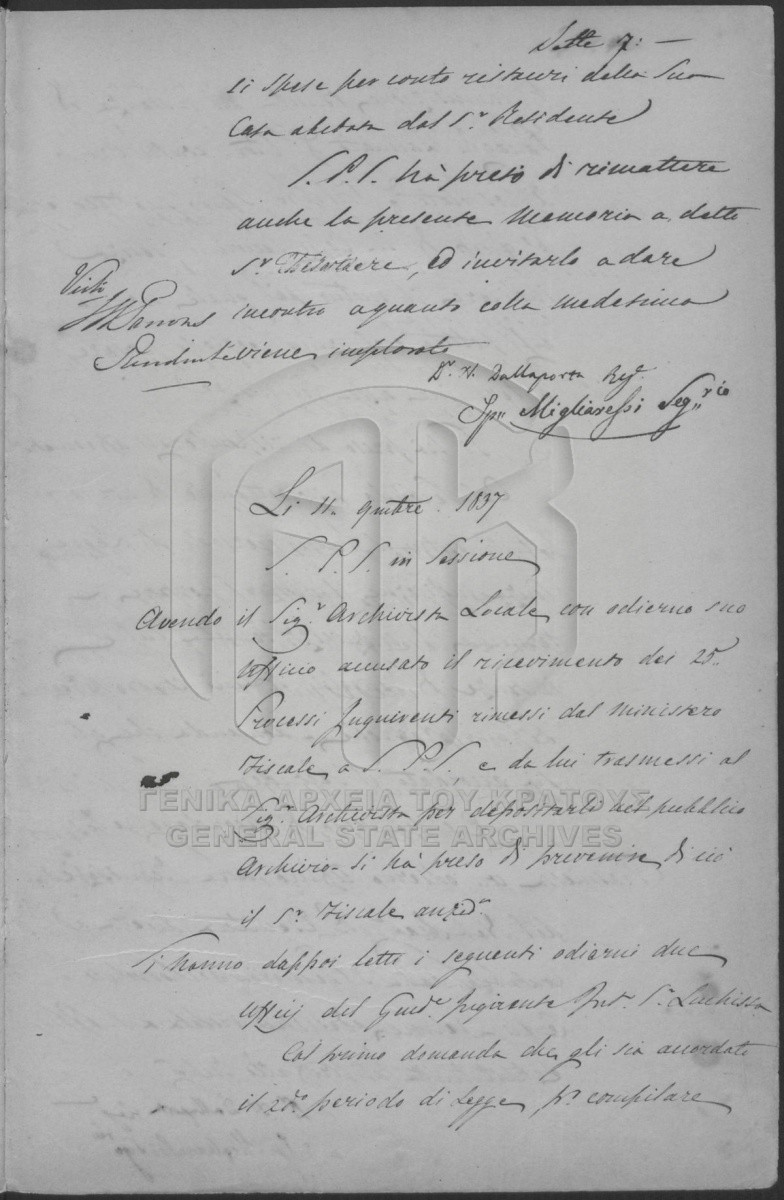 Sette 7: —
si spese per conto ristauri della Sua
Casa abitata dal Sr. Residente
S. P. S. hà preso di rimettere
anche la presente Memoria a detto
Sr. Tesoriere, ed invitarlo a dare
incontro a quanto colla medesima
viene implorato
Visto
Dr. N. Dallaporta Regte.
Sp.. Migliaressi Seg..rio
Li 11. 9mbre. 1837
S. P. S. in Sessione
Avendo il Sigr. Archivista Locale con odierno suo
Ufficio accusato il ricevimento dei 25..
Processi Inquirenti rimessi dal Ministero
Fiscale a S. P. S., e da lui trasmessi al
Sigr. Archivista per depositarli nel pubblico
Archivio si hà preso di prevenire di ciò
il Sr. Fiscale anzid.
Si hanno dappoi letti i seguenti odierni due
Ufficj del Giude. Sr.
Col primo domanda che gli sia accordato
il 2do. periodo di Legge, pr. compilare
ΓΕΝΙΚΑ ΑΡΧΕΙΑ ΤΟΥ ΚΡΑΤΟΥΣ
GENERAL STATE ARCHIVES